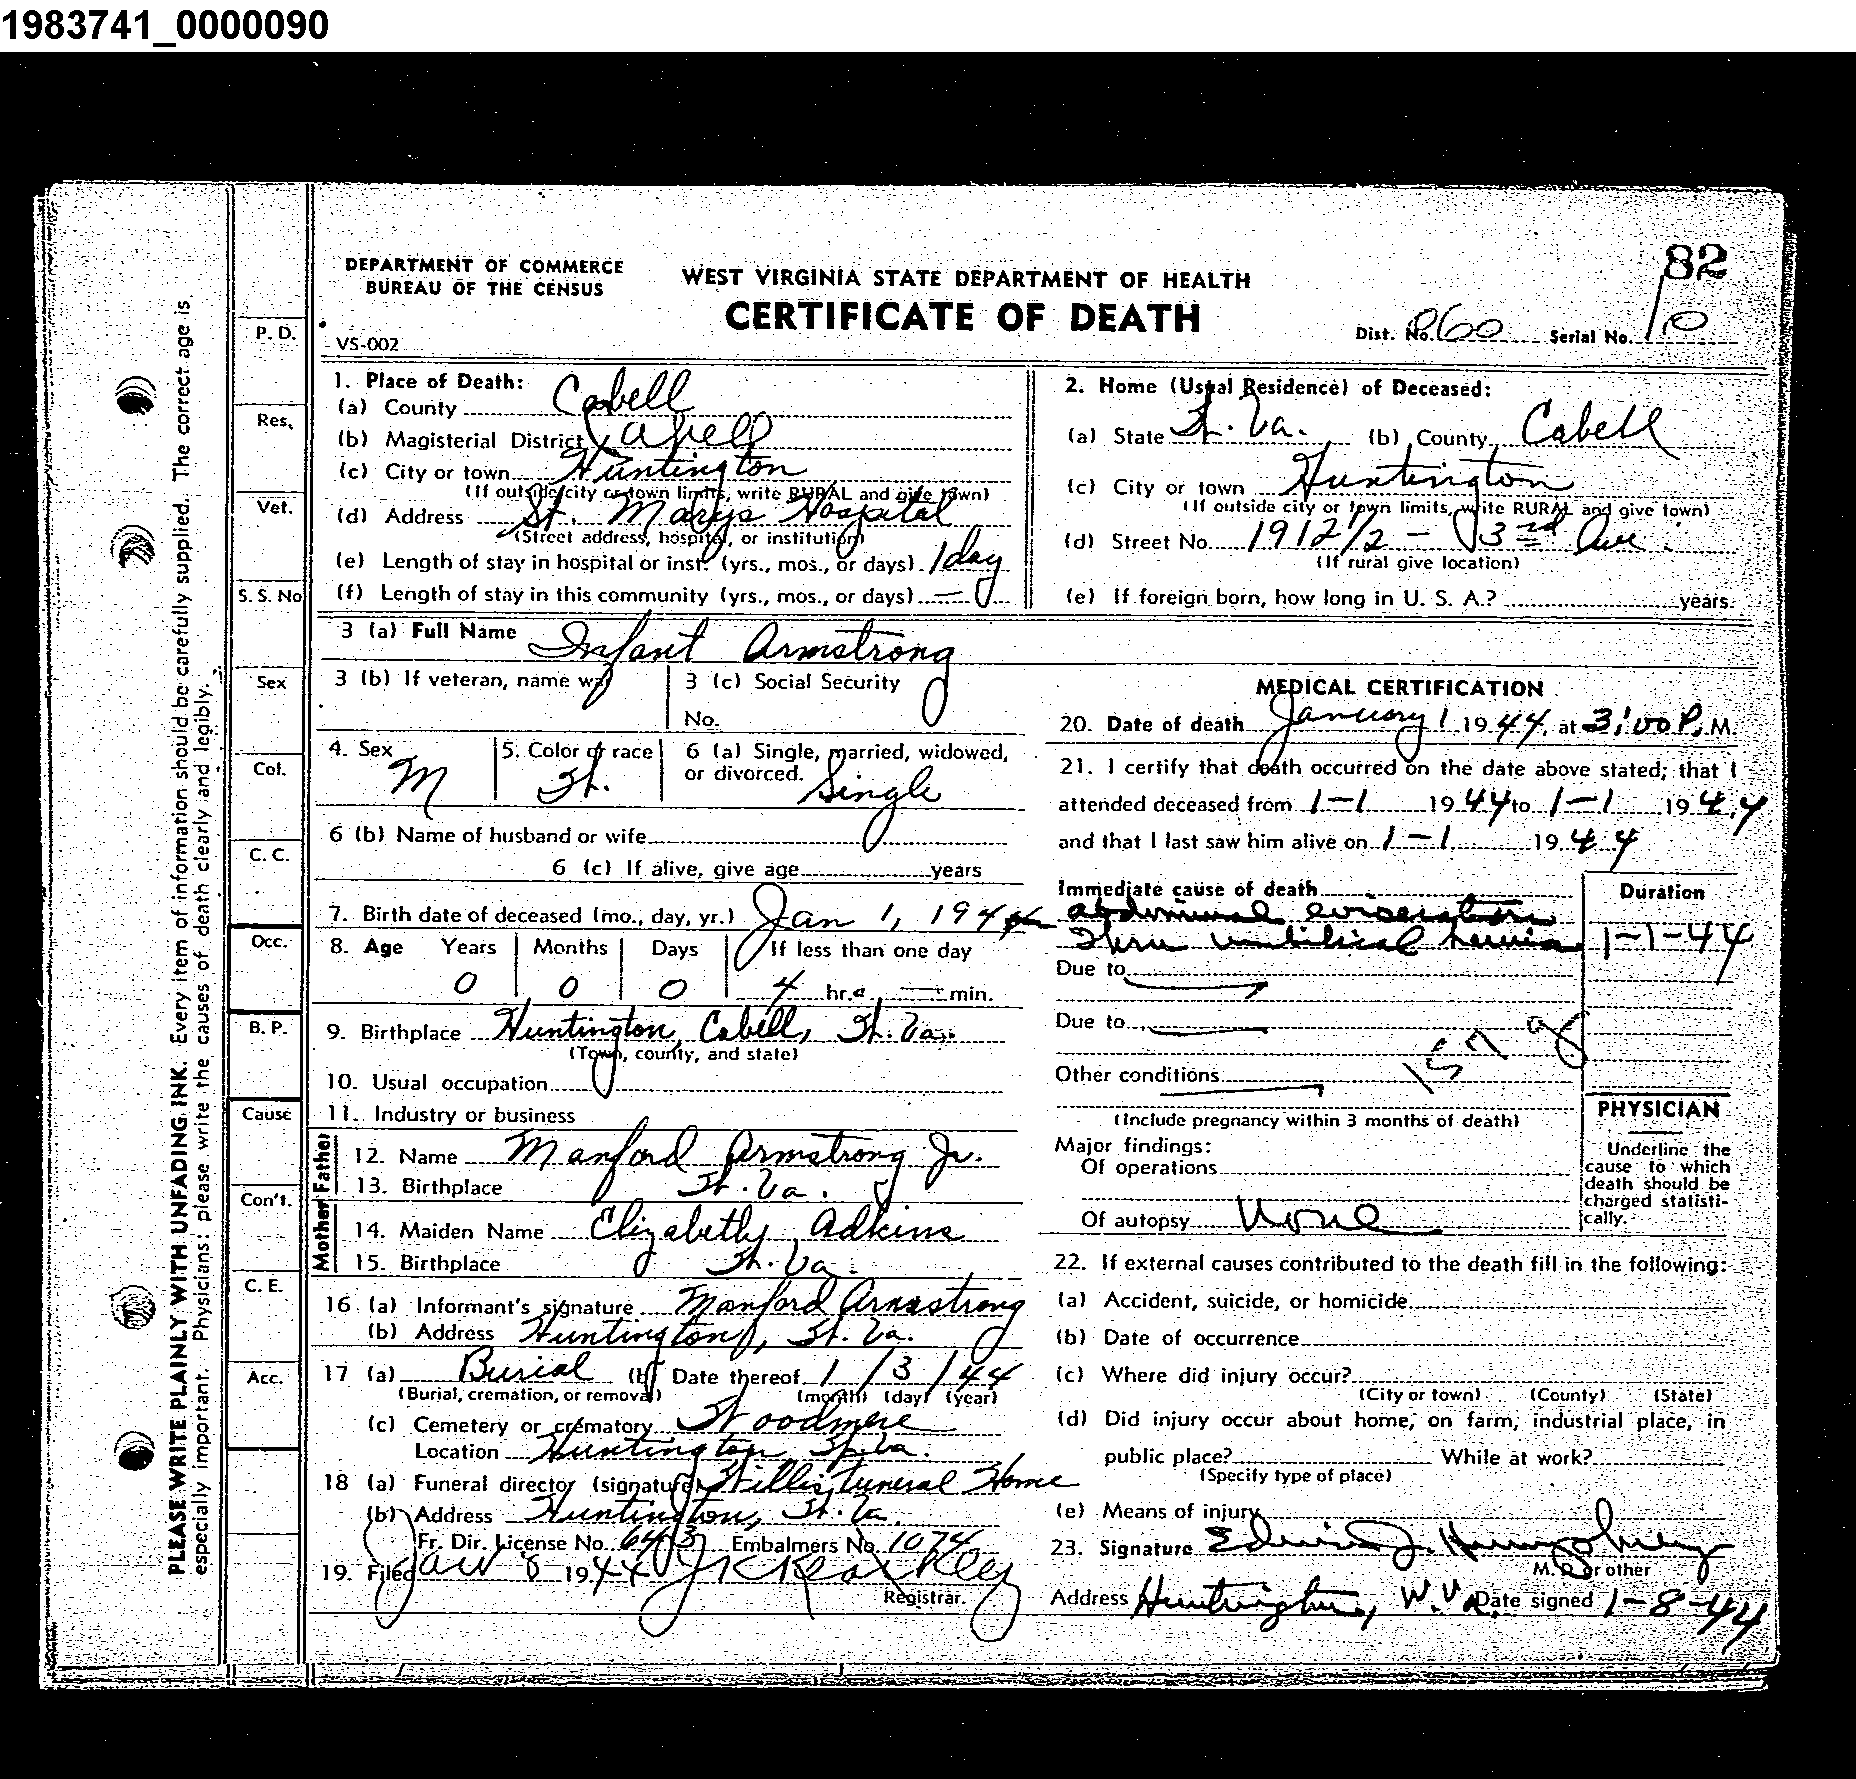 1983741_0000090
82
DEPARTMENT OF COMMERCE
BUREAU OF THE CENSUS
WEST VIRGINIA STATE DEPARTMENT OF HEALTH
CERTIFICATE OF DEATH
VS-002
Dist. No. 060 Serial No. 10
PLEASE WRITE PLAINLY WITH UNFADING INK. Every item of information should be carefully supplied. The correct age is
especially important. Physicians: please write the causes of death clearly and legibly.
P. D.
Res.
Vet.
S. S. No
Sex
Col.
C. C.
Occ.
B. P.
Cause
Con't.
C. E.
Acc.
1. Place of Death:
(a) County Cabell
(b) Magisterial District Cabell
(c) City or town Huntington
(If outside city or town limits, write RURAL and give town)
(d) Address St. Marys Hospital
(Street address, hospital, or institution)
(e) Length of stay in hospital or inst. (yrs., mos., or days) 1 day
(f) Length of stay in this community (yrs., mos., or days) —
2. Home (Usual Residence) of Deceased:
(a) State W. Va. (b) County Cabell
(c) City or town Huntington
(If outside city or town limits, write RURAL and give town)
(d) Street No. 1912 1/2 - 3rd Ave.
(If rural give location)
(e) If foreign born, how long in U. S. A.? years.
3 (a) Full Name Infant Armstrong
3 (b) If veteran, name war
3 (c) Social Security
No.
4. Sex M
5. Color or race W.
6 (a) Single, married, widowed,
or divorced. Single
6 (b) Name of husband or wife
6 (c) If alive, give age years
7. Birth date of deceased (mo., day, yr.) Jan 1, 1944
8. Age Years Months Days If less than one day
0 0 0 4 hrs — min.
9. Birthplace Huntington, Cabell, W. Va.
(Town, county, and state)
10. Usual occupation
11. Industry or business
Father
12. Name Manford Armstrong Jr.
13. Birthplace W. Va.
Mother
14. Maiden Name Elizabeth Adkins
15. Birthplace W. Va.
16 (a) Informant's signature Manford Armstrong
(b) Address Huntington, W. Va.
17 (a) Burial (b) Date thereof 1 / 3 / 44
(Burial, cremation, or removal) (month) (day) (year)
(c) Cemetery or crematory Woodmere
Location Huntington W. Va.
18 (a) Funeral director (signature) Willis Funeral Home
(b) Address Huntington, W. Va.
Fr. Dir. License No. 643 Embalmers No. 1074
19. Filed Jan 8 1944
Registrar.
MEDICAL CERTIFICATION
20. Date of death January 1 1944, at 3:00 P. M.
21. I certify that death occurred on the date above stated; that I
attended deceased from 1-1 1944 to 1-1 1944
and that I last saw him alive on 1-1 1944
Immediate cause of death Duration
abdominal evisceration
thru umbilical hernia 1-1-44
Due to
Due to
157 g
Other conditions
(Include pregnancy within 3 months of death)
Major findings:
Of operations
Of autopsy None
PHYSICIAN
Underline the
cause to which
death should be
charged statisti-
cally.
22. If external causes contributed to the death fill in the following:
(a) Accident, suicide, or homicide
(b) Date of occurrence
(c) Where did injury occur?
(City or town) (County) (State)
(d) Did injury occur about home, on farm, industrial place, in
public place? While at work?
(Specify type of place)
(e) Means of injury
23. Signature Edwin J. Humphrey
M. D. or other
Address Huntington, W. Va. Date signed 1-8-44